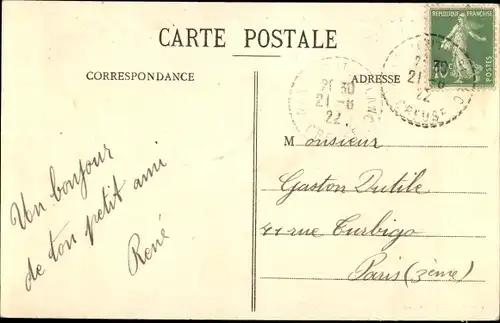 CARTE POSTALE
CORRESPONDANCE
ADRESSE
REPUBLIQUE FRANÇAISE
10c
POSTES
21 30
21 - 8
22
CREUSE
21 30
21 - 8
22
CREUSE
Monsieur
Gaston Dutile
41 rue Turbigo
Paris (3ème)
Un bonjour
de ton petit ami
René